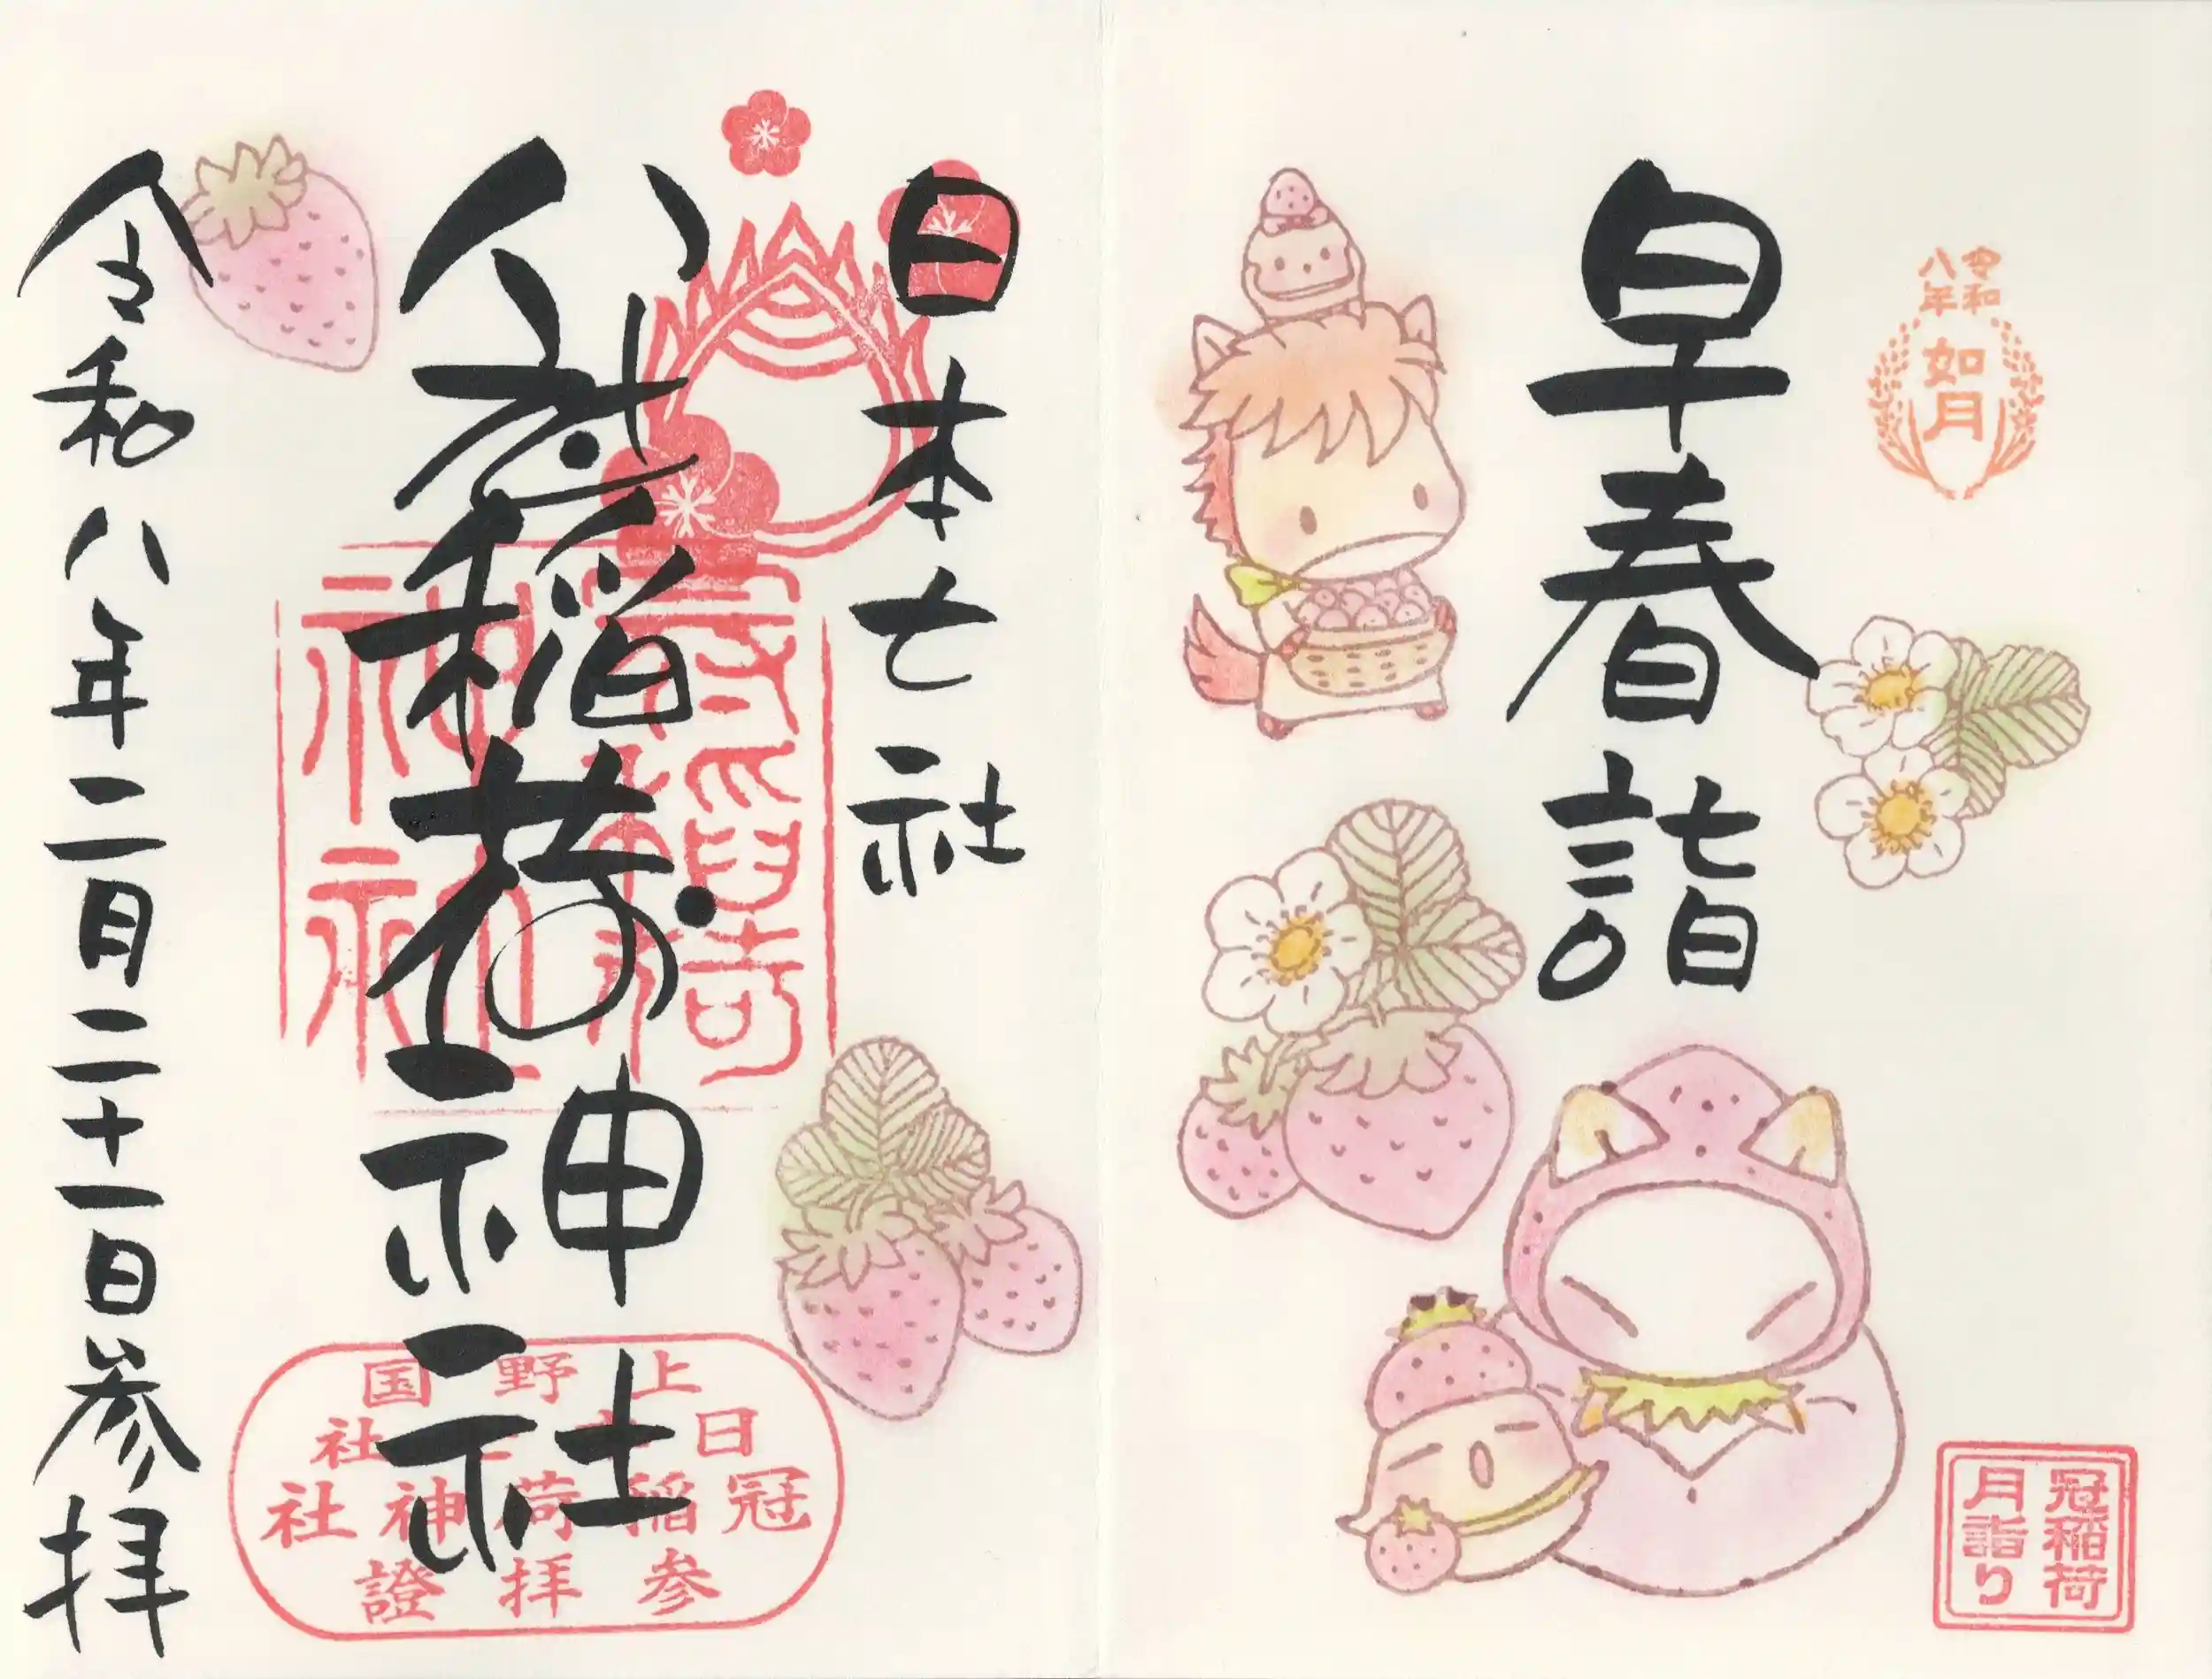 令和
八年
如月
早春詣
冠稲荷
月詣り
日本七社
冠稲荷神社
令和八年二月二十一日参拝
上野国
日本七社
冠稲荷神社
参拝證